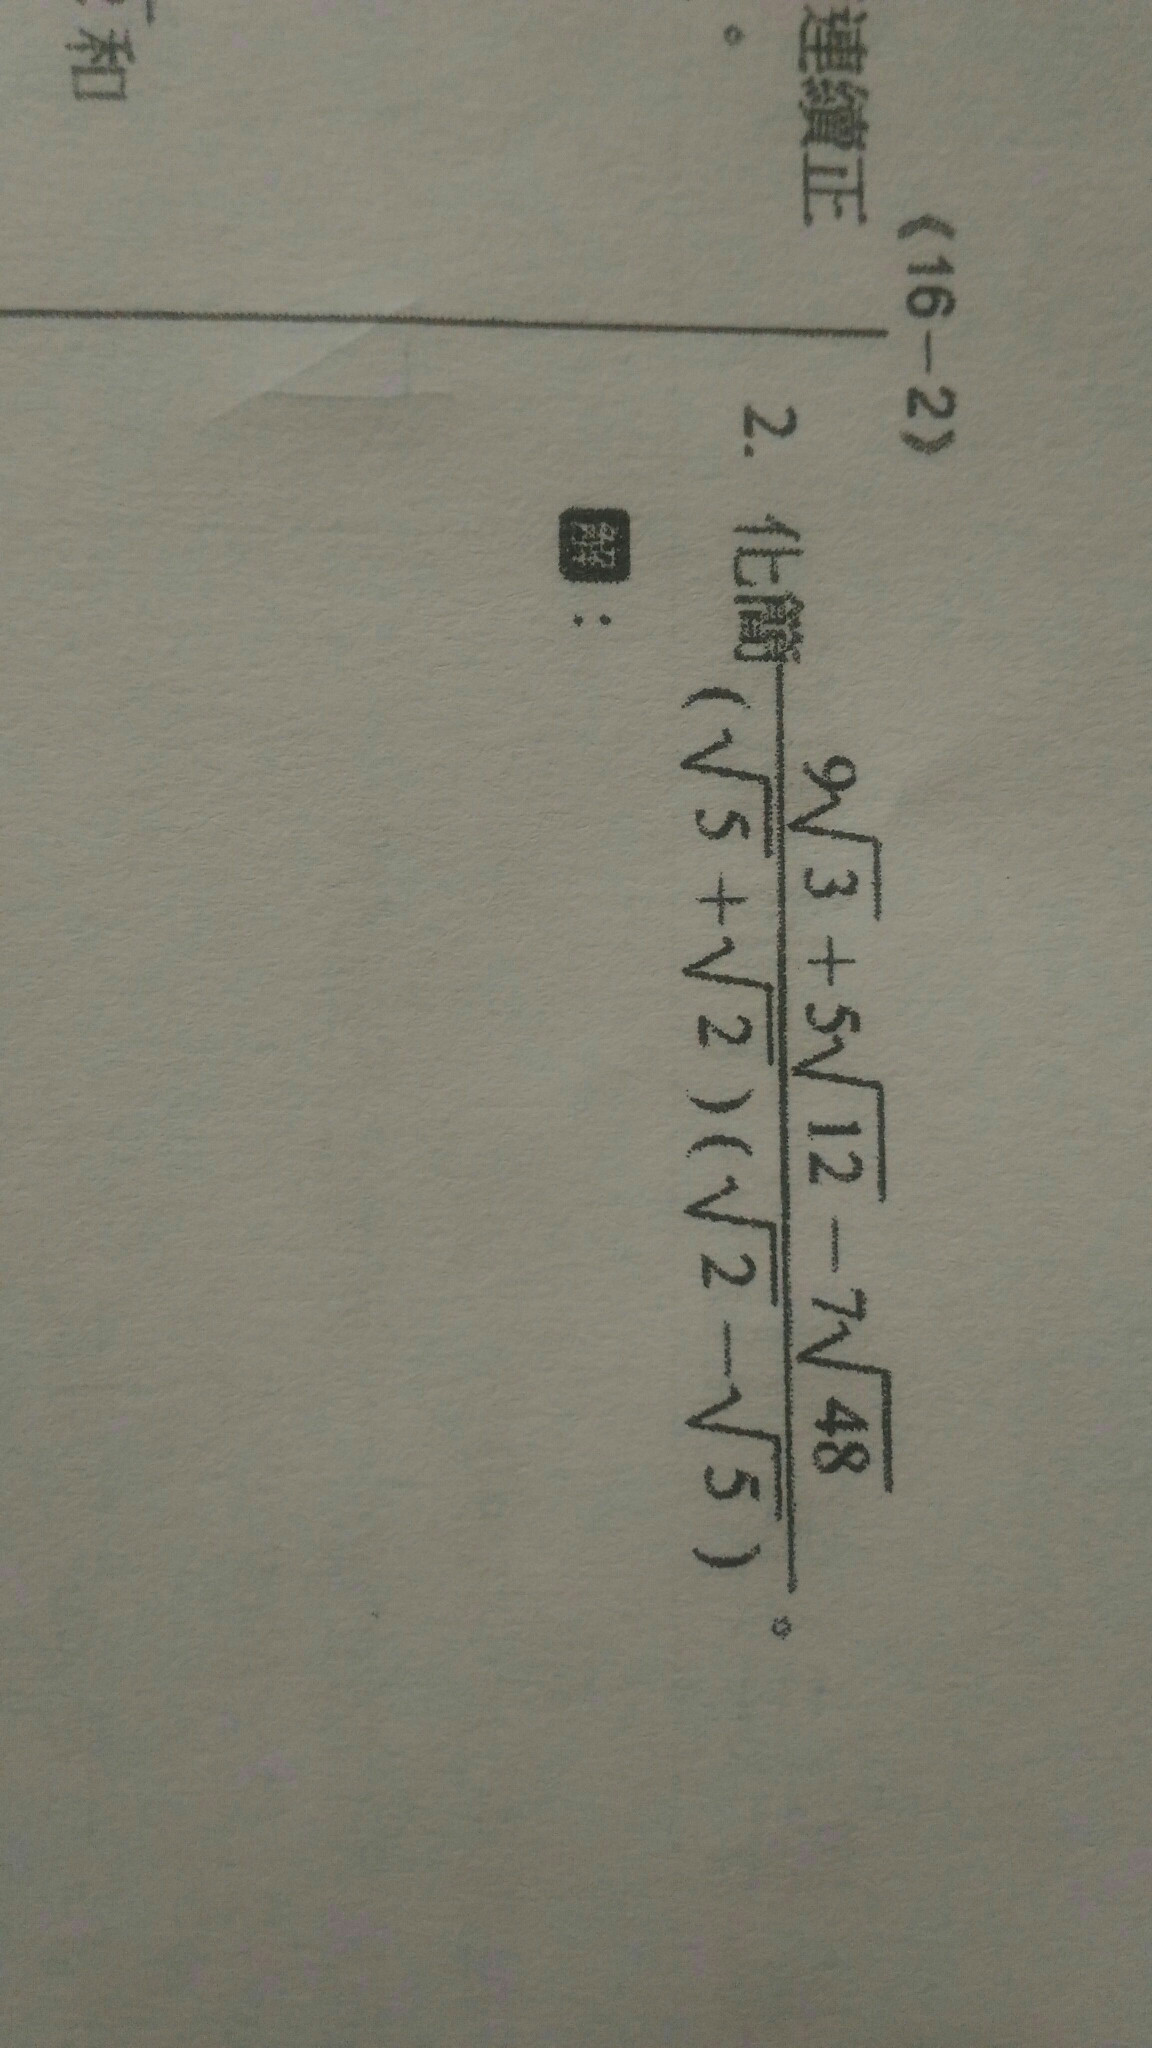 《16-2》
連續正
。
和
2. 化簡 \frac{9\sqrt{3}+5\sqrt{12}-7\sqrt{48}}{(\sqrt{5}+\sqrt{2})(\sqrt{2}-\sqrt{5})}。
解：